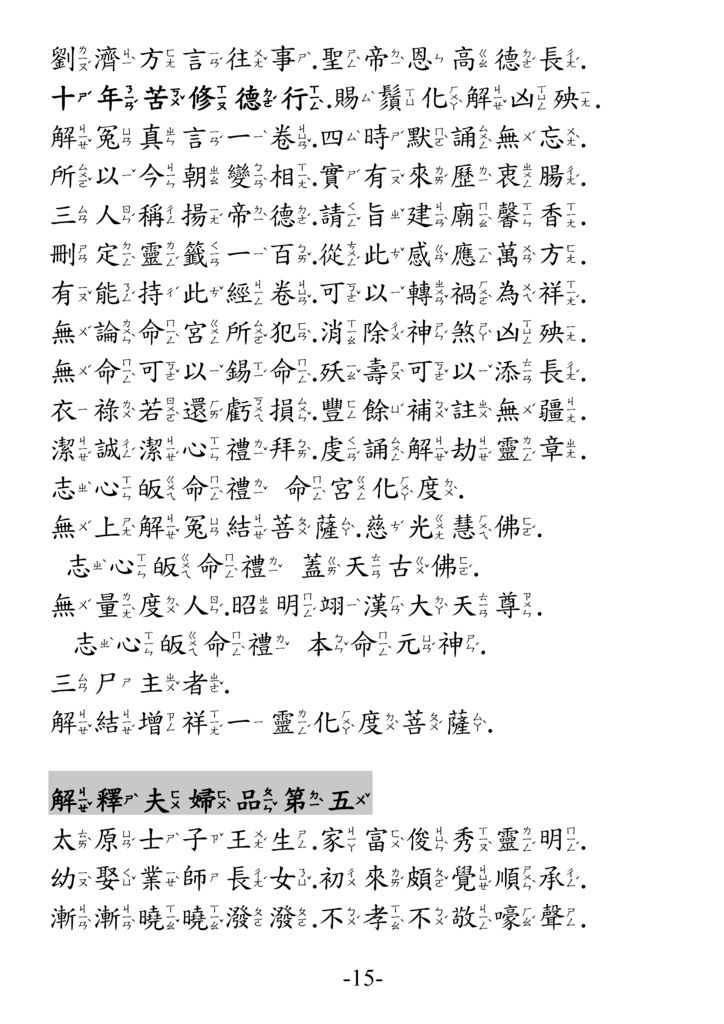 劉濟方言往事.聖帝恩高德長.
十年苦修德行.賜鬚化解凶殃.
解冤真言一卷.四時默誦無忘.
所以今朝變相.實有來歷衷腸.
三人稱揚帝德.請旨建廟馨香.
刪定靈籤一百.從此感應萬方.
有能持此經卷.可以轉禍為祥.
無論命宮所犯.消除神煞凶殃.
無命可以錫命.殀壽可以添長.
衣祿若還虧損.豐餘補註無疆.
潔誠潔心禮拜.虔誦解劫靈章.
志心皈命禮 命宮化度.
無上解冤結菩薩.慈光慧佛.
志心皈命禮 蓋天古佛.
無量度人.昭明翊漢大天尊.
志心皈命禮 本命元神.
三尸主者.
解結增祥一靈化度菩薩.
解釋夫婦品第五
太原士子王生.家富俊秀靈明.
幼娶業師長女.初來頗覺順承.
漸漸曉曉潑潑.不孝不敬嚎聲.
-15-